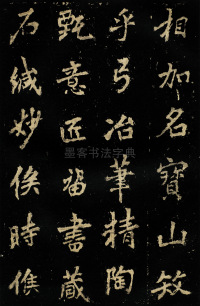 相加名寶山敍
乎弓冶筆精陶
甄意匠留書藏
石緘妙俟時儁
墨客书法字典